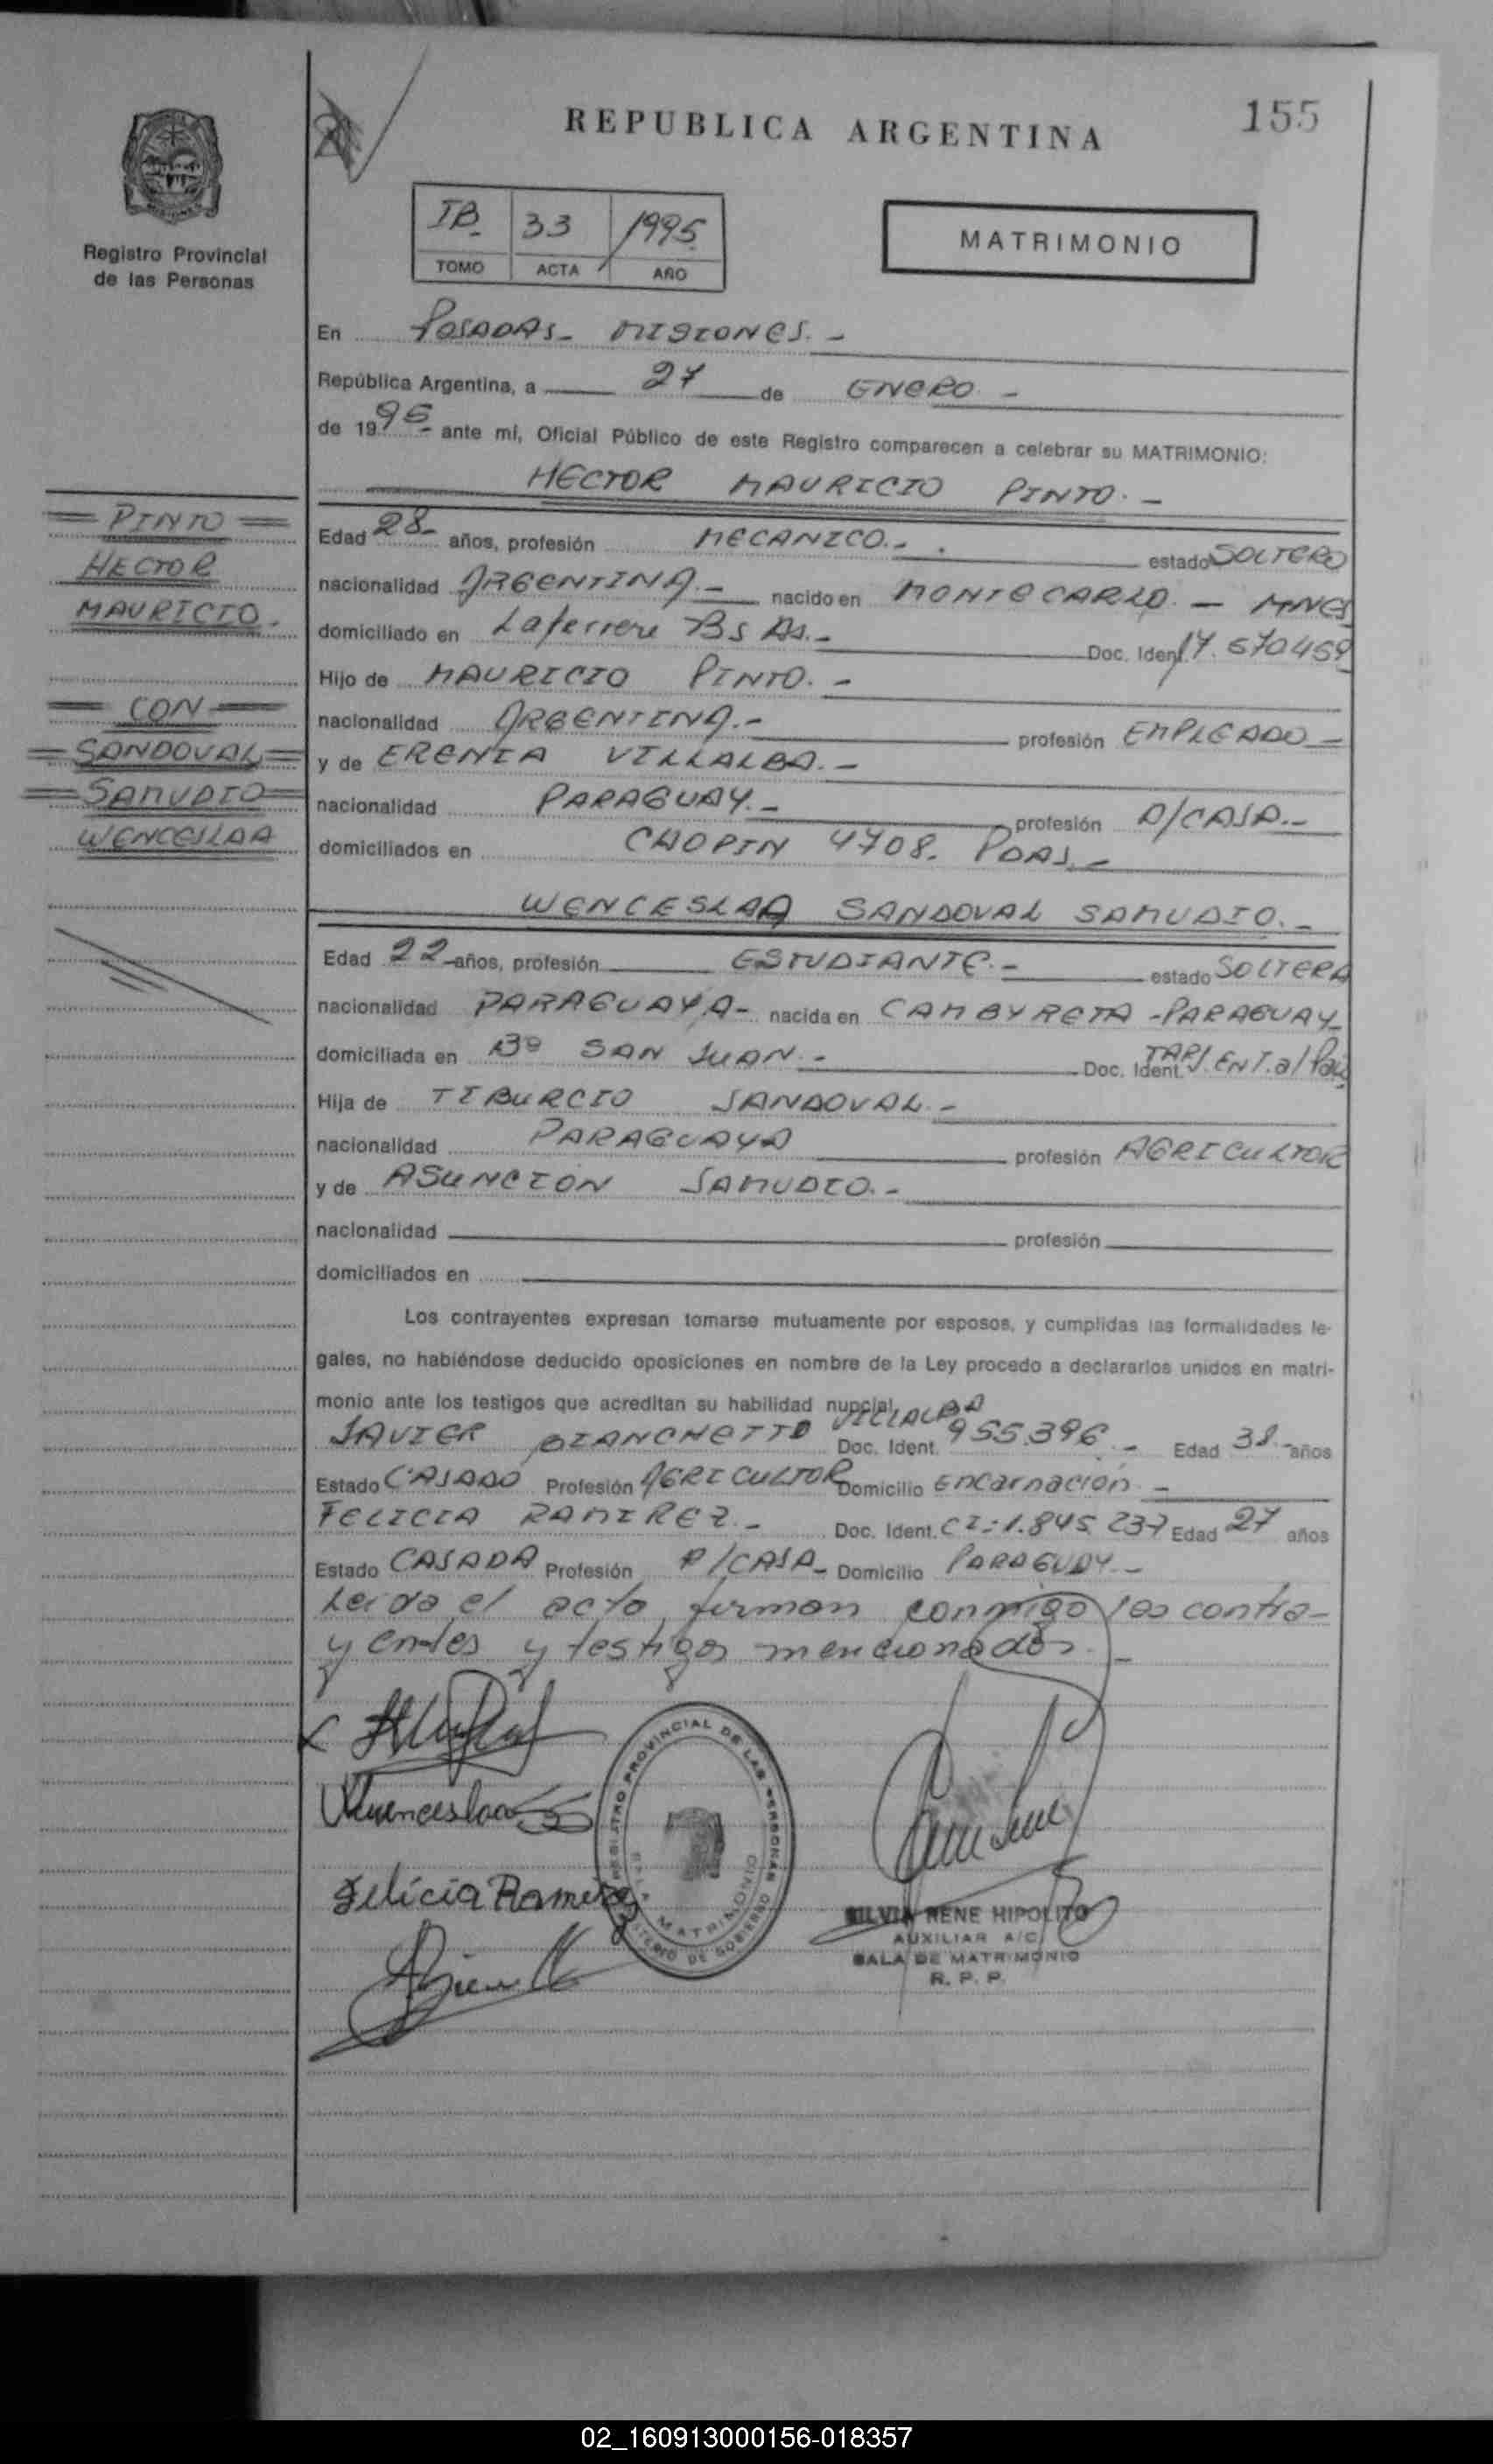 155
REPUBLICA ARGENTINA
Registro Provincial
de las Personas
IB 33 1995
TOMO ACTA AÑO
MATRIMONIO
En POSADAS - MISIONES. -
República Argentina, a 27 de ENERO -
de 1995 - ante mí, Oficial Público de este Registro comparecen a celebrar su MATRIMONIO:
HECTOR MAURICIO PINTO. -
= PINTO =
HECTOR
MAURICIO.
= CON =
= SANDOVAL =
= SAMUDIO =
WENCESLAA
Edad 28- años, profesión MECANICO. - estado SOLTERO
nacionalidad ARGENTINA. - nacido en MONTECARLO. - MNES
domiciliado en Laferrere Bs As. - Doc. Ident. 17.570459
Hijo de MAURICIO PINTO. -
nacionalidad ARGENTINA. - profesión EMPLEADO -
y de ERENIA VILLALBA. -
nacionalidad PARAGUAY. - profesión A/CASA. -
domiciliados en CHOPIN 4708. PDAS. -
WENCESLAA SANDOVAL SAMUDIO. -
Edad 22 - años, profesión ESTUDIANTE. - estado SOLTERA
nacionalidad PARAGUAYA - nacida en CAMBYRETA - PARAGUAY -
domiciliada en Bº SAN JUAN. - Doc. Ident. TARJ. ENT. al País
Hija de TIBURCIO SANDOVAL. -
nacionalidad PARAGUAYA profesión AGRICULTOR
y de ASUNCION SAMUDIO. -
nacionalidad profesión
domiciliados en
Los contrayentes expresan tomarse mutuamente por esposos, y cumplidas las formalidades le-
gales, no habiéndose deducido oposiciones en nombre de la Ley procedo a declararlos unidos en matri-
monio ante los testigos que acreditan su habilidad nupcial
JAVIER BIANCHETTO VILLALBA Doc. Ident. 955.396. - Edad 38. - años
Estado CASADO Profesión AGRICULTOR Domicilio Encarnación. -
FELICIA RAMIREZ. - Doc. Ident. CI: 1.845 237 Edad 27 años
Estado CASADA Profesión A/CASA - Domicilio PARAGUAY. -
Leida el acta, firman conmigo los contra-
yentes y testigos mencionados. -
Wenceslaa
Felicia Ramirez
REGISTRO PROVINCIAL DE LAS PERSONAS
SALA MATRIMONIO
MINISTERIO DE GOBIERNO
SILVIA RENE HIPOLITO
AUXILIAR A/C
SALA DE MATRIMONIO
R. P. P.
02_160913000156-018357